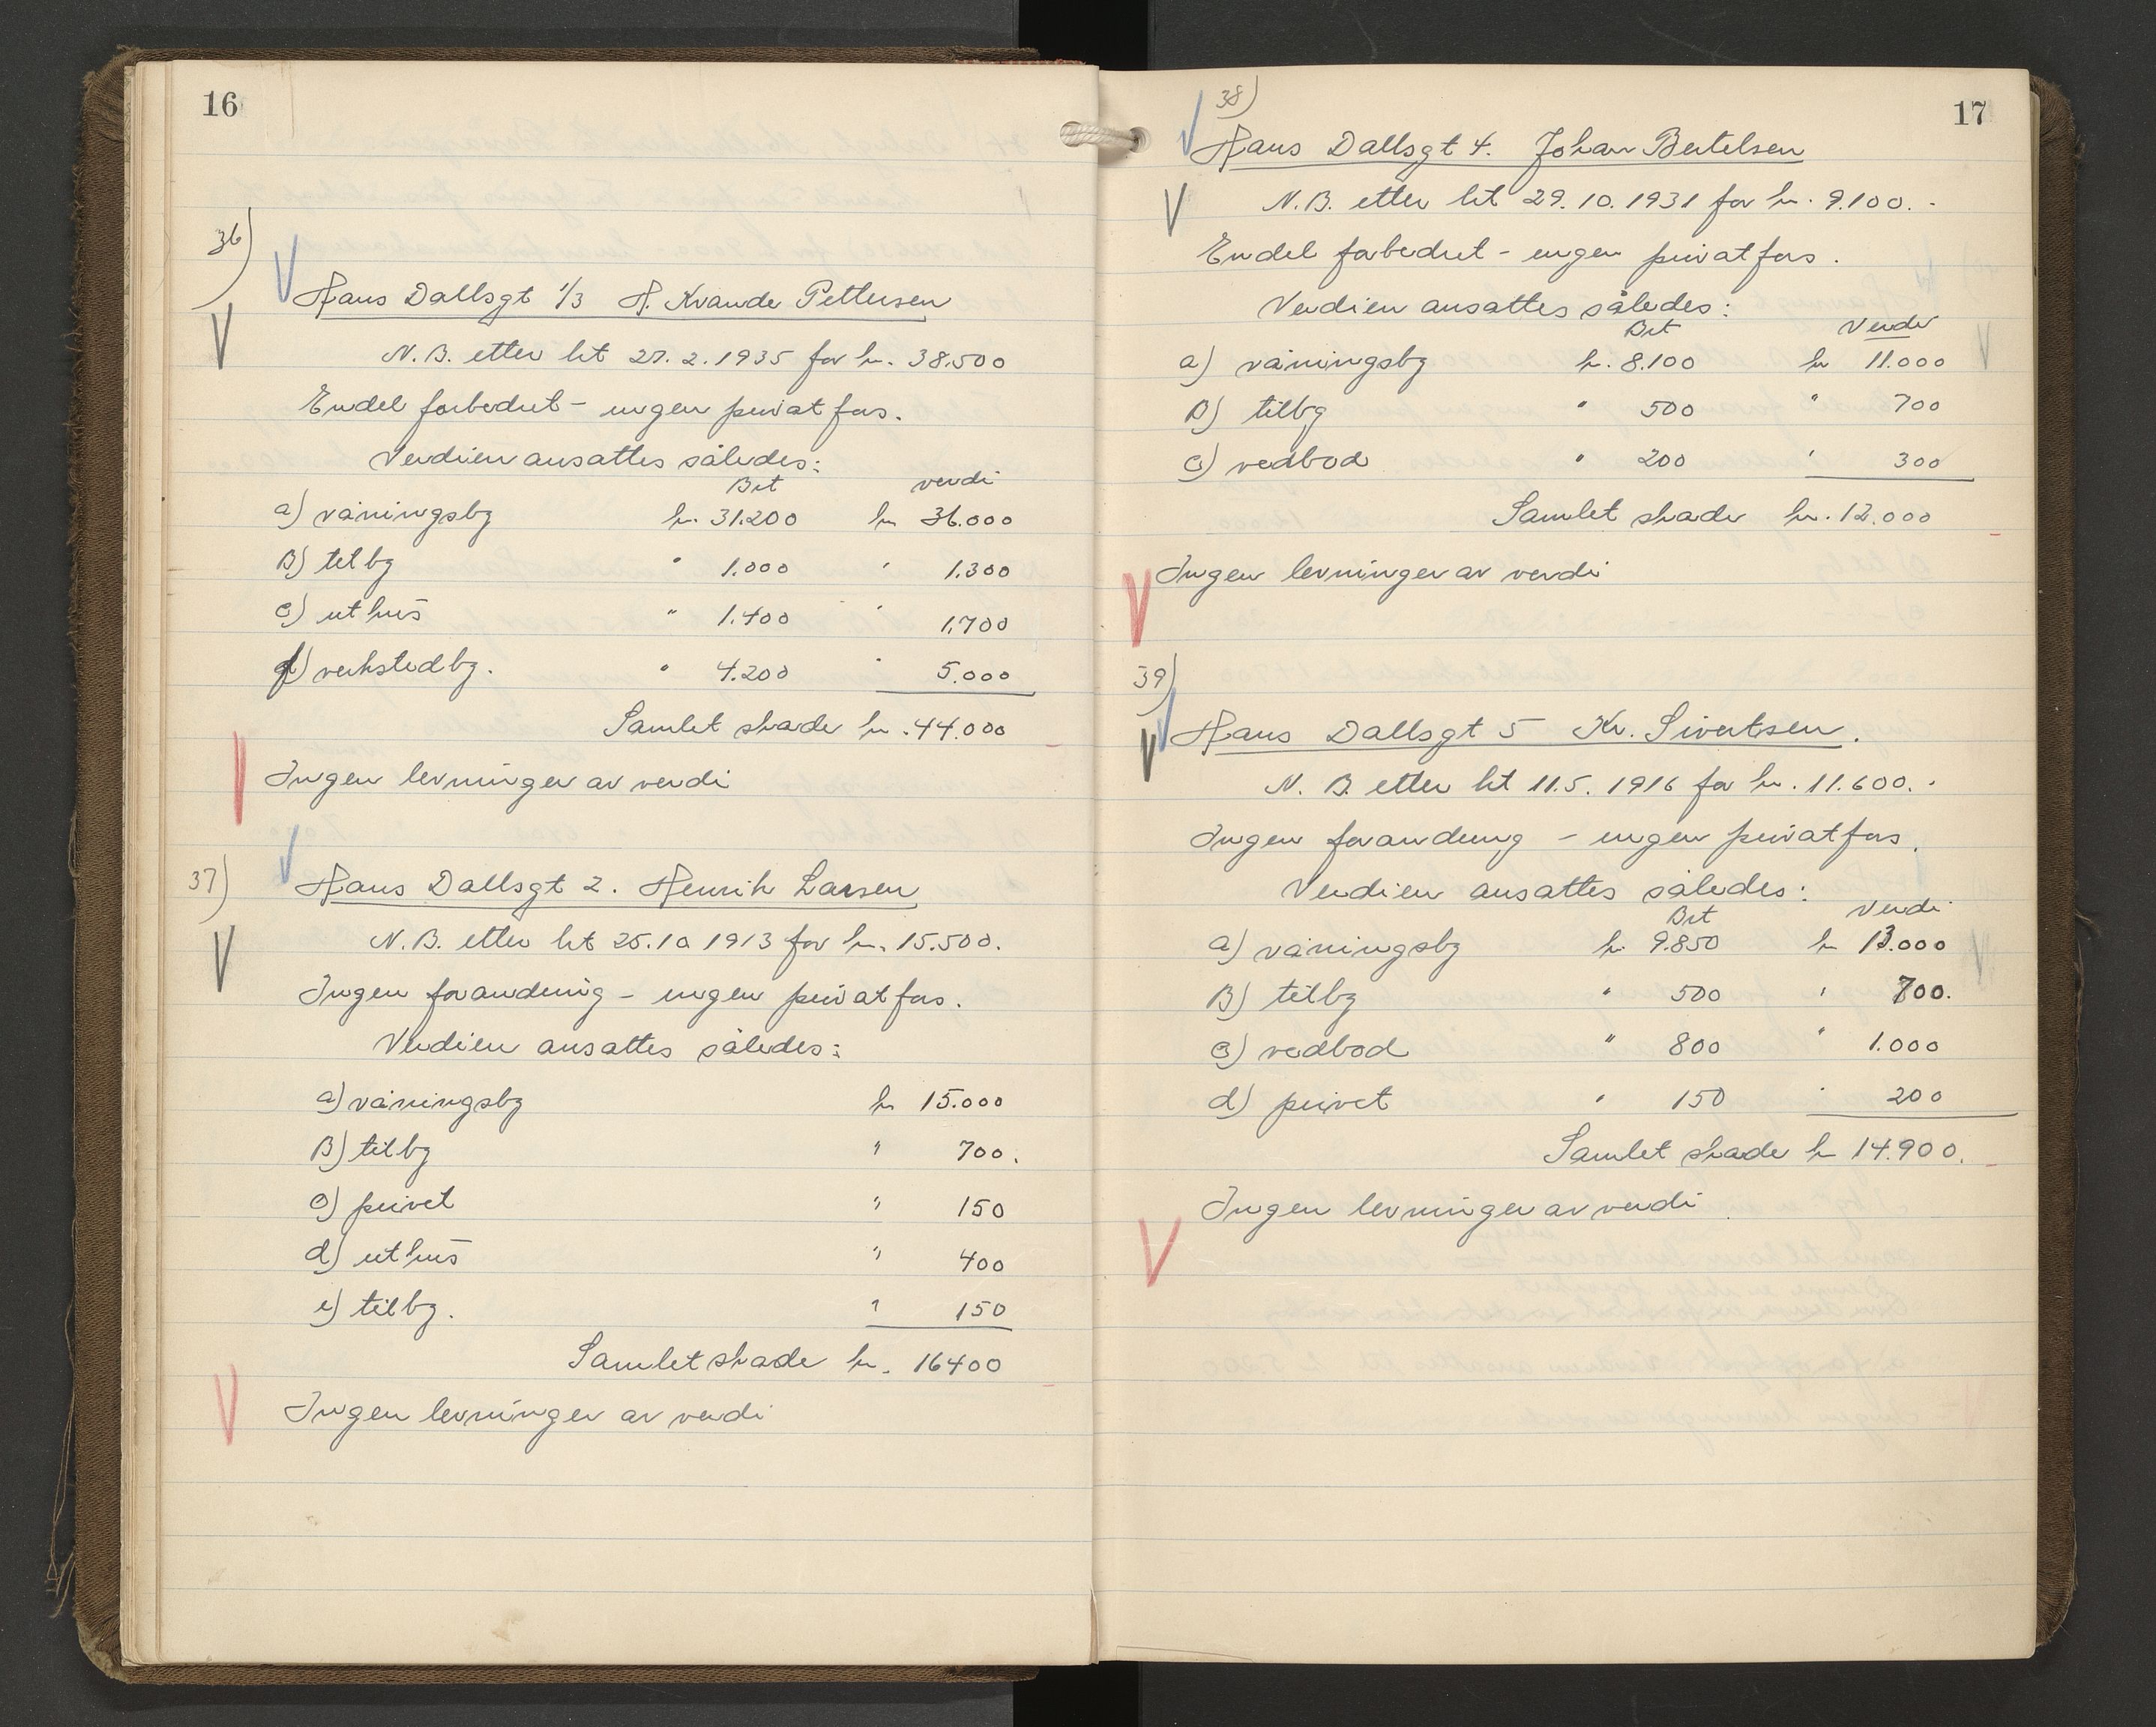 16
36)
Hans Dallsgt 1/3 H. Kvande Pettersen
N.B. etter tkt 27.2.1935 for kr. 38.500
Endel forbedret - ingen privat fors.
Verdien ansattes således:
Brt verdi
a) våningsbg kr. 31.200 kr 36.000
B) tilbg " 1.000 " 1.300
c) uthus " 1.400 " 1.700
d) verkstedbg. " 4.200 " 5.000
Samlet skade kr. 44.000
Ingen levninger av verdi
37)
Hans Dallsgt 2. Henrik Larsen
N.B. etter tkt 25.10 1913 for kr. 15.500.
Ingen forandring - ingen privat fors.
Verdien ansattes således:
a) våningsbg kr 15.000
B) tilbg " 700.
c) privet " 150
d) uthus " 400
e) tilbg. " 150
Samlet skade kr. 16400
Ingen levninger av verdi
17
38)
Hans Dallsgt 4. Johan Bertelsen
N.B. etter tkt 29.10.1931 for kr. 9.100.-
Endel forbedret - ingen privat fors.
Verdien ansattes således:
Brt Verdi
a) våningsbg kr. 8.100 kr 11.000
B) tilbg " 500 " 700
c) vedbod " 200 " 300
Samlet skade kr. 12.000
Ingen levninger av verdi
39)
Hans Dallsgt 5 Kr. Sivertsen.
N.B. etter tkt 11.5.1916 for kr. 11.600.-
Ingen forandring - ingen privat fors.
Verdien ansattes således:
Brt Verdi
a) våningsbg kr. 9.850 kr 13.000
B) tilbg " 500 " 700.
c) vedbod " 800 " 1.000
d) privet " 150 " 200
Samlet skade kr 14.900.
Ingen levninger av verdi